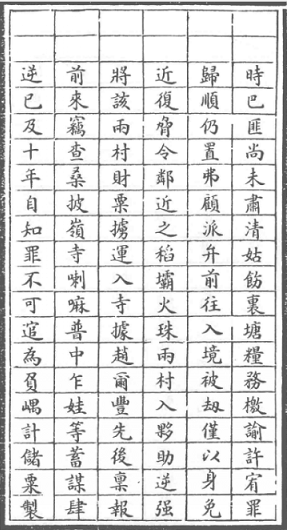 時巴匪尚未肅清姑飭裏塘糧務檄諭許宥罪
歸順仍置弗顧派弁前往入境被刼僅以身免
近復脅令鄰近之稻壩火珠兩村入夥助逆强
將該兩村財票擄運入寺據趙爾豐先後禀報
前來竊查桑披嶺寺喇嘛普中乍娃等蓄謀肆
逆已及十年自知罪不可逭為負嵎計儲粟製